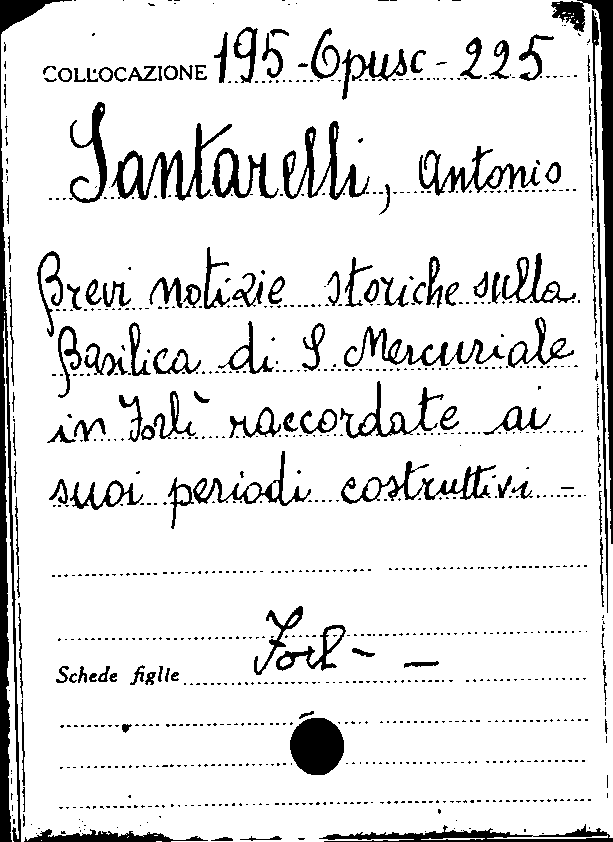 COLLOCAZIONE 195-Opusc-225
Santarelli, Antonio
Brevi notizie storiche sulla
Basilica di S. Mercuriale
in Forlì raccordate ai
suoi periodi costruttivi -
Forl - -
Schede figlie